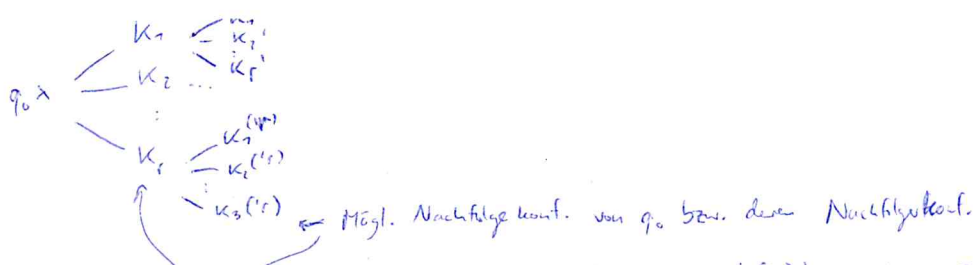 K₁
K₂'
K_r'
K₂ ...
q₀ x
⋮
K_r
K₂('r)
⋮
K₃('r)
← Mögl. Nachfolgekonf. von q₀ bzw. deren Nachfolgekonf.